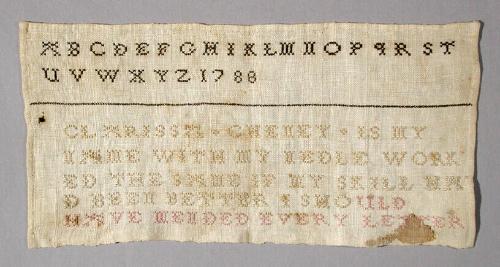 A B C D E F G H I K L M N O P Q R S T
U V W X Y Z 1788
CLARISSA CHENEY IS MY
NAME WITH MY NEDLE WORK
ED THE SAME IF MY SKILL HA
D BEEN BETTER I SHOULD
HAVE MENDED EVERY LETTER